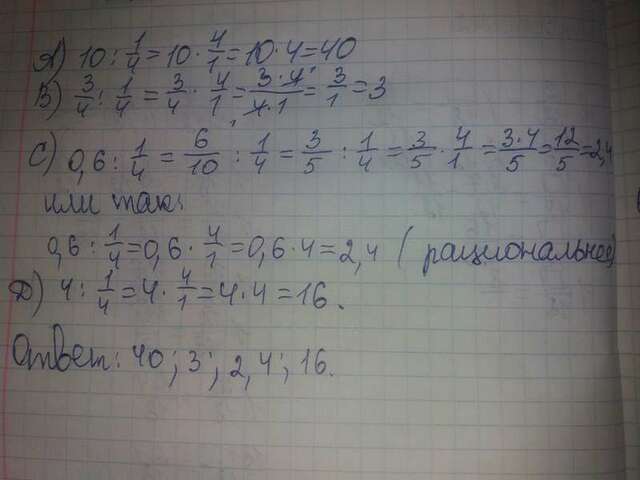 А) 10 : 1/4 = 10 · 4/1 = 10 · 4 = 40
В) 3/4 : 1/4 = 3/4 · 4/1 = 3·4/4·1 = 3/1 = 3
С) 0,6 : 1/4 = 6/10 : 1/4 = 3/5 : 1/4 = 3/5 · 4/1 = 3·4/5 = 12/5 = 2,4
или так:
0,6 : 1/4 = 0,6 · 4/1 = 0,6 · 4 = 2,4 ( рациональнее)
Д) 4 : 1/4 = 4 · 4/1 = 4 · 4 = 16.
Ответ: 40; 3; 2,4; 16.